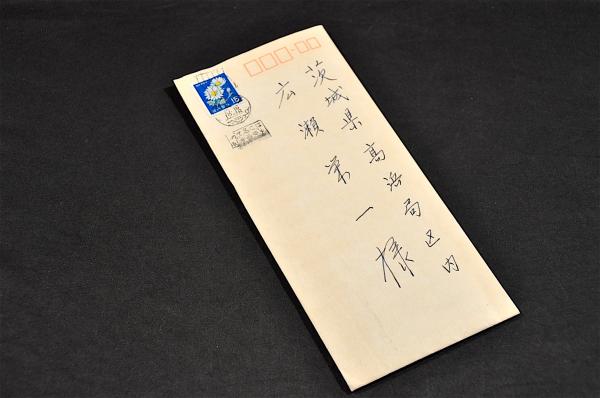 茨城県高浜局区内
広瀬栄一様
15